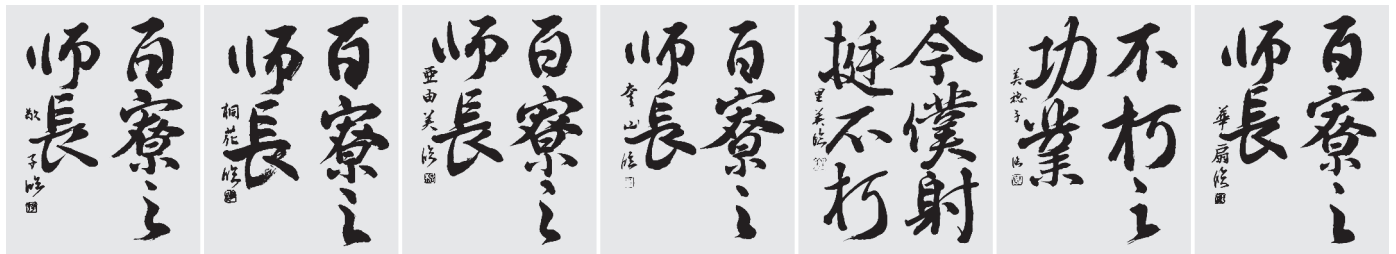 百寮之
師長
百寮之
師長
桐苑臨
百寮之
師長
亜由美臨
百寮之
師長
奎山臨
今僕射
挺不朽
里美臨
不朽之
功業
美穂子臨
百寮之
師長
華扇臨